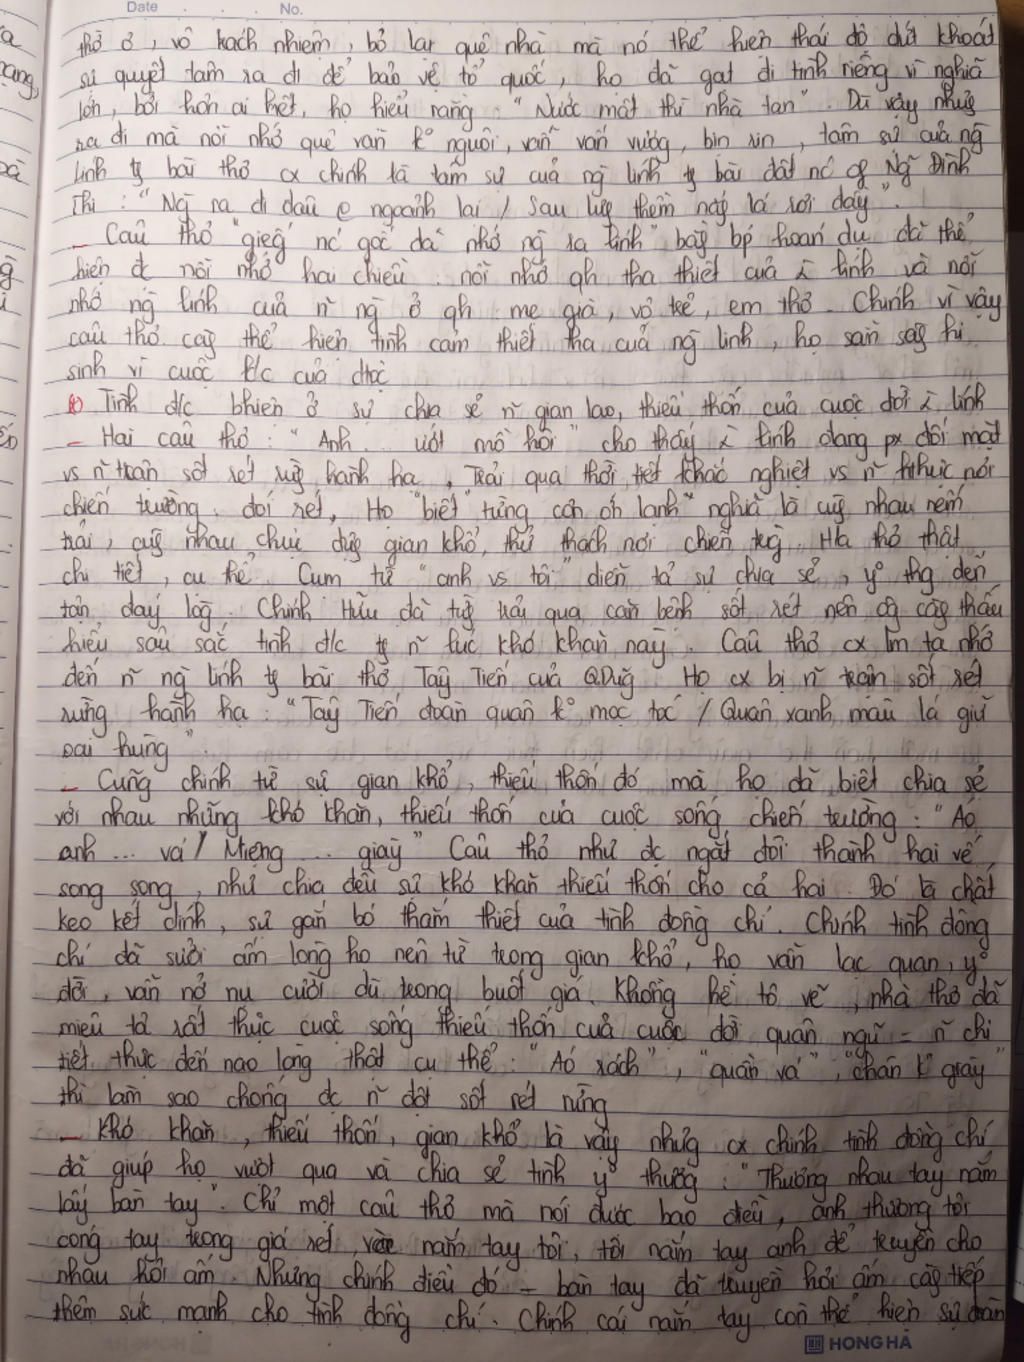 Date No.
thờ ơ, vô trách nhiệm, bỏ lại quê nhà mà nó thể hiện thái độ dứt khoát
sự quyết tâm ra đi để bảo vệ tổ quốc, họ đã gạt đi tình riêng vì nghĩa
lớn, bởi hơn ai hết, họ hiểu rằng: "Nước mất thì nhà tan". Dù vậy nhưg
ra đi mà nỗi nhớ quê vẫn k° nguôi, vẫn vấn vương, bịn rịn, tâm sự của ng
lính tg bài thơ cx chính là tâm sự của ng lính tg bài đất nc of Ng Đình
Thi: "Ng ra đi đầu e ngoảnh lại / Sau lưg thềm nắg lá rơi đầy".
- Câu thơ "giếg nc gốc đa nhớ ng ra lính" bằg bp hoán dụ đã thể
hiện đc nỗi nhớ hai chiều: nỗi nhớ qh tha thiết của ~ lính và nỗi
nhớ ng lính của n~ ng ở qh: mẹ già, vợ trẻ, em thơ. Chính vì vậy
câu thơ càg thể hiện tình cảm thiết tha của ng lính, họ sẵn sàg hi
sinh vì cuộc k/c của dtộc
b) Tình đ/c bhiện ở sự chia sẻ n~ gian lao, thiếu thốn của cuộc đời ~ lính
- Hai câu thơ: "Anh... ướt mồ hôi" cho thấy ~ lính đang px đối mặt
vs n~ trận sốt rét rừg hành hạ, Trải qua thời tiết khắc nghiệt vs n~ nơi
chiến trường, đói rét, Họ "biết từng cơn ớn lạnh" nghĩa là cùg nhau nếm
trải, cùg nhau chịu đựg gian khổ, thử thách nơi chiến trg. Hả thơ thật
chi tiết, cụ thể. Cụm từ "anh vs tôi" diễn tả sự chia sẻ, y° thg đến
tận đáy lòg. Chính Hữu đã từg trải qua căn bệnh sốt rét nên ôg càg thấu
hiểu sâu sắc tình đ/c tg n~ lúc khó khăn này. Câu thơ cx lm ta nhớ
đến n~ ng lính tg bài thơ Tây Tiến của Q.Dũg. Họ cx bị n~ trận sốt rét
rừng hành hạ: "Tây Tiến đoàn quân k° mọc tóc / Quân xanh màu lá giữ
oai hùng".
- Cũng chính từ sự gian khổ, thiếu thốn đó mà họ đã biết chia sẻ
với nhau những khó khăn, thiếu thốn của cuộc sống chiến trường: "Áo
anh ... vá / Miệng ... giày" Câu thơ như đc ngắt đôi thành hai vế
song song, như chia đều sự khó khăn thiếu thốn cho cả hai. Đó là chất
keo kết dính, sự gắn bó thắm thiết của tình đồng chí. Chính tình đồng
chí đã sưởi ấm lòng họ nên từ trong gian khổ, họ vẫn lạc quan, y°
đời, vẫn nở nụ cười dù trong buốt giá. Không hề tô vẽ, nhà thơ đã
miêu tả rất thực cuộc sống thiếu thốn của cuộc đời quân ngũ = n~ chi
tiết thực đến nao lòng thật cụ thể: "Áo rách", "quần vá", "chân k° giày"
thì làm sao chống đc n~ đợt sốt rét rừng
- Khó khăn, thiếu thốn, gian khổ là vậy nhưg cx chính tình đồng chí
đã giúp họ vượt qua và chia sẻ tình y° thương: "Thương nhau tay nắm
lấy bàn tay". Chỉ một câu thơ mà nói được bao điều, anh thương tôi
cóng tay trong giá rét, nắm tay tôi, tôi nắm tay anh để truyền cho
nhau hơi ấm. Nhưng chính điều đó - bàn tay đã truyền hơi ấm càg tiếp
thêm sức mạnh cho tình đồng chí. Chính cái nắm tay còn thể hiện sự đoàn
HONG HA